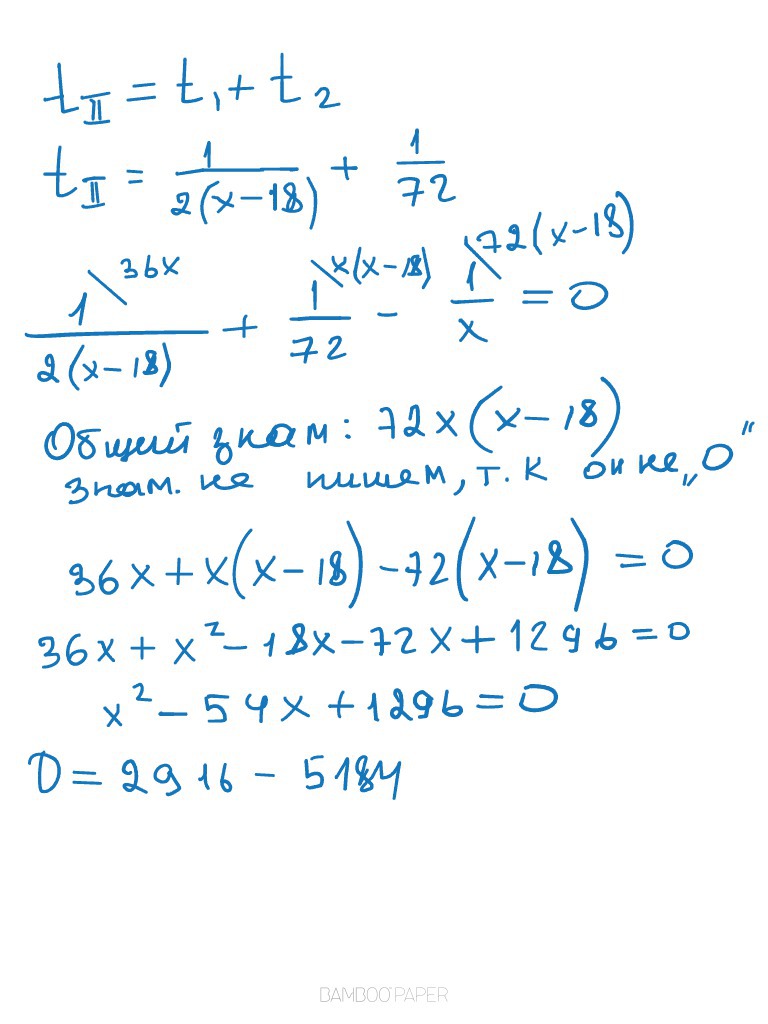 t_II = t₁ + t₂
t_II = 1/(2(x-18)) + 1/72
1^36x/(2(x-18)) + 1^x(x-18)/72 - 1^72(x-18)/x = 0
Общий знам: 72x(x-18)
знам. не пишем, т.к он не „0"
36x + x(x-18) - 72(x-18) = 0
36x + x² - 18x - 72x + 1296 = 0
x² - 54x + 1296 = 0
D = 2916 - 5184
BAMBOO PAPER